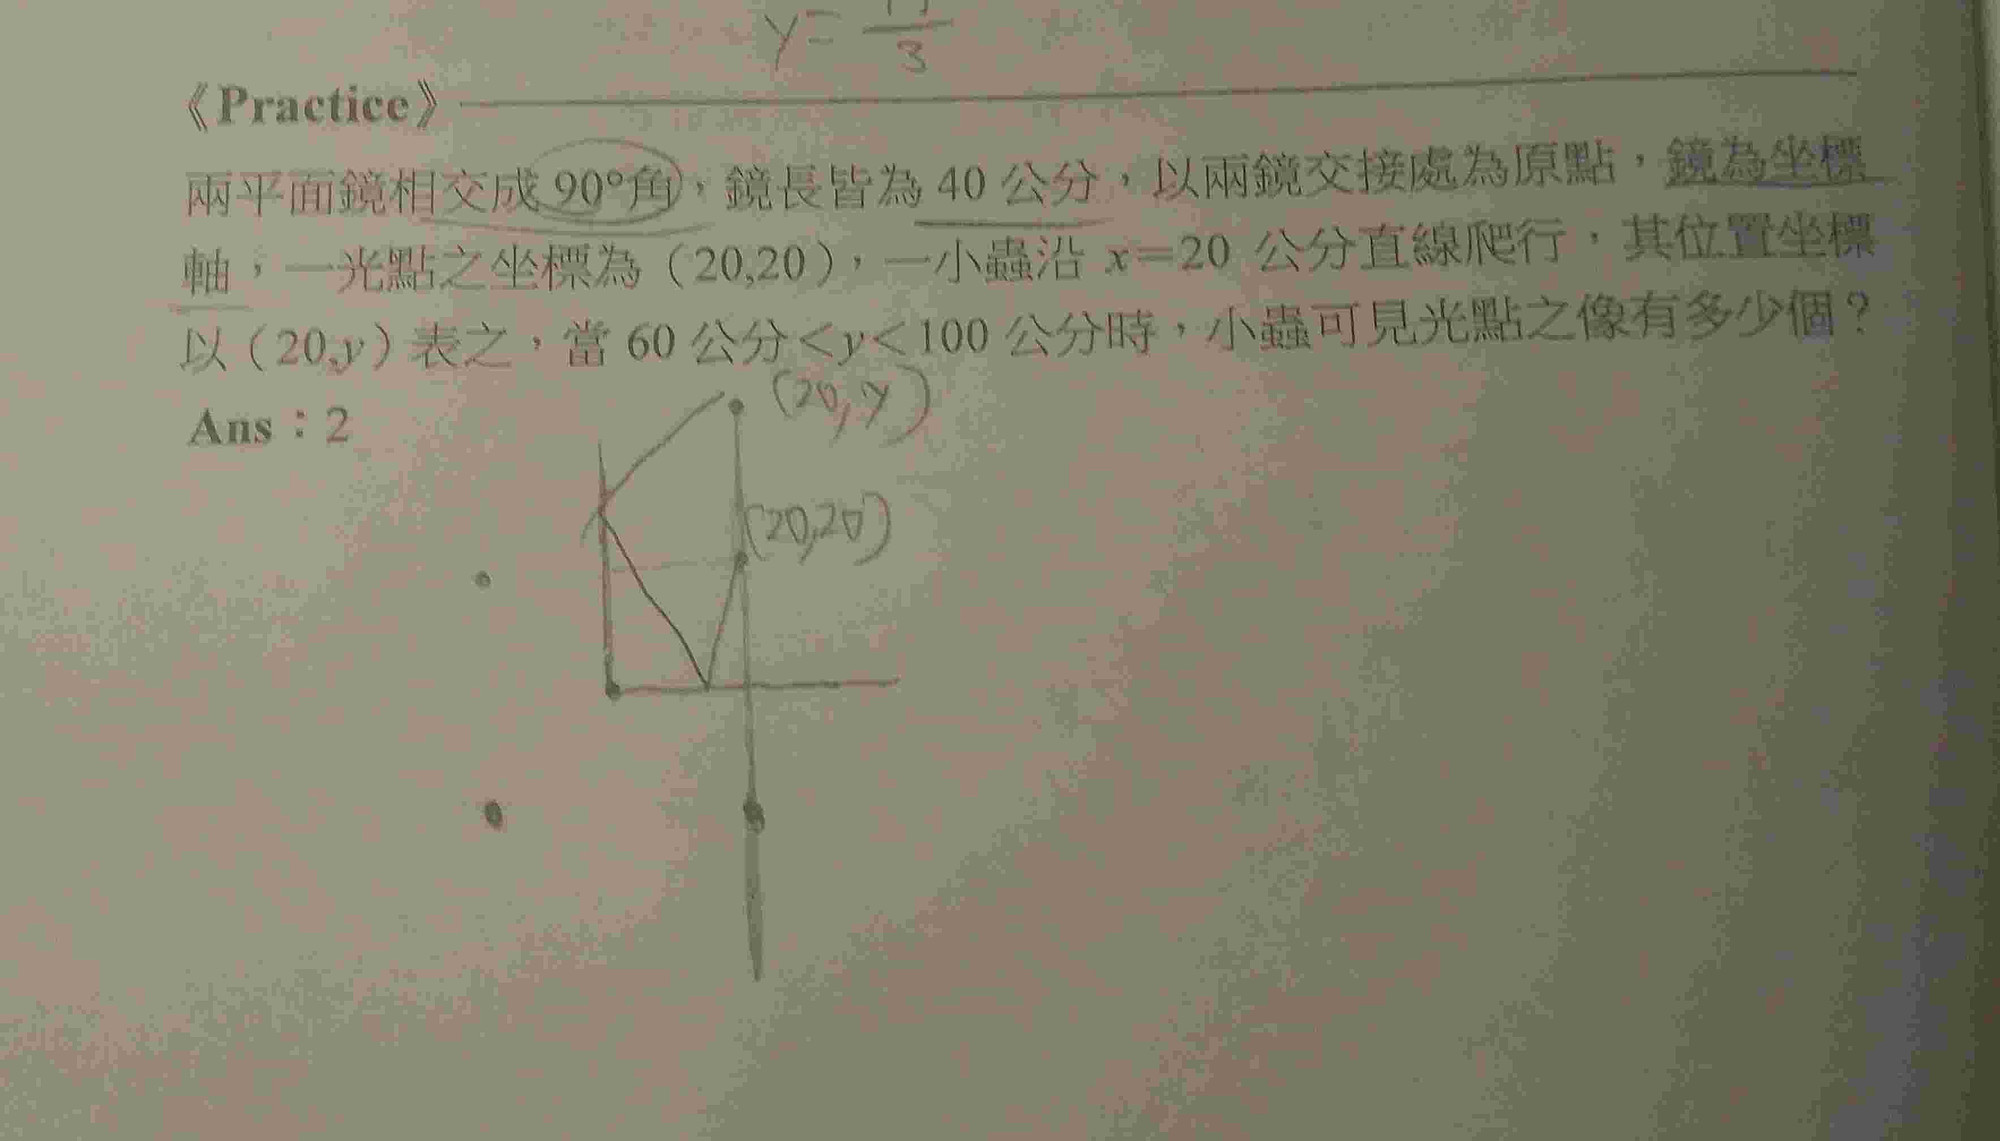 y= 3
《Practice》
兩平面鏡相交成 90°角，鏡長皆為 40 公分，以兩鏡交接處為原點，鏡為坐標
軸，一光點之坐標為（20,20），一小蟲沿 x=20 公分直線爬行，其位置坐標
以（20,y）表之，當 60 公分<y<100 公分時，小蟲可見光點之像有多少個？
(20,y)
Ans：2
(20,20)